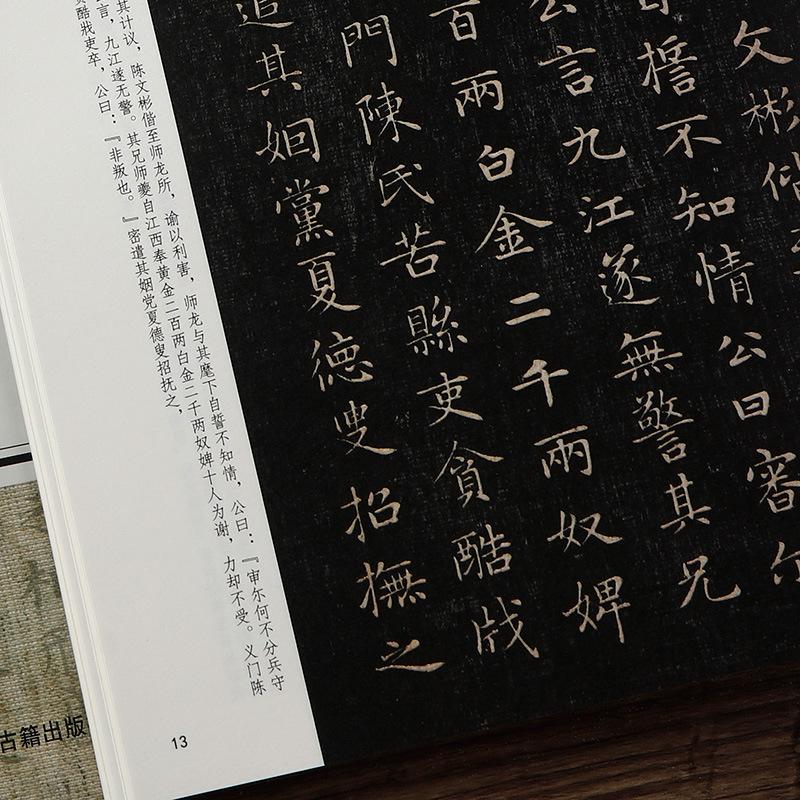 文彬偕
誓不知情公曰審
公言九江遂無警其兄
百兩白金二千兩奴婢
門陳氏苦縣吏貪酷戕
遣其姻黨夏德叟招撫之
其计议，陈文彬偕至师龙所，谕以利害，师龙与其麾下自誓不知情，公曰：『审尔何不分兵守
言，九江遂无警。其兄师夔自江西奉黄金二百两白金二千两奴婢十人为谢，力却不受。义门陈
酷戕吏卒，公曰：『非叛也。』密遣其姻党夏德叟招抚之，
13
古籍出版